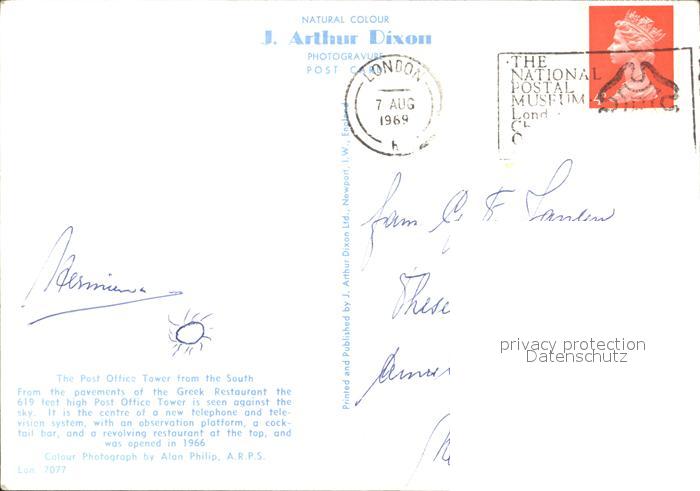 NATURAL COLOUR
J. Arthur Dixon
PHOTOGRAVURE
POST CARD
LONDON
7 AUG
1969
h
THE
NATIONAL
POSTAL
MUSEUM
Lond
Ch
Printed and Published by J. Arthur Dixon Ltd., Newport, I.W., England
Fam G F
These
privacy protection
Datenschutz
The Post Office Tower from the South
From the pavements of the Greek Restaurant the
619 feet high Post Office Tower is seen against the
sky. It is the centre of a new telephone and tele-
vision system, with an observation platform, a cock-
tail bar, and a revolving restaurant at the top, and
was opened in 1966
Colour Photograph by Alan Philip, A.R.P.S.
Lon. 7077